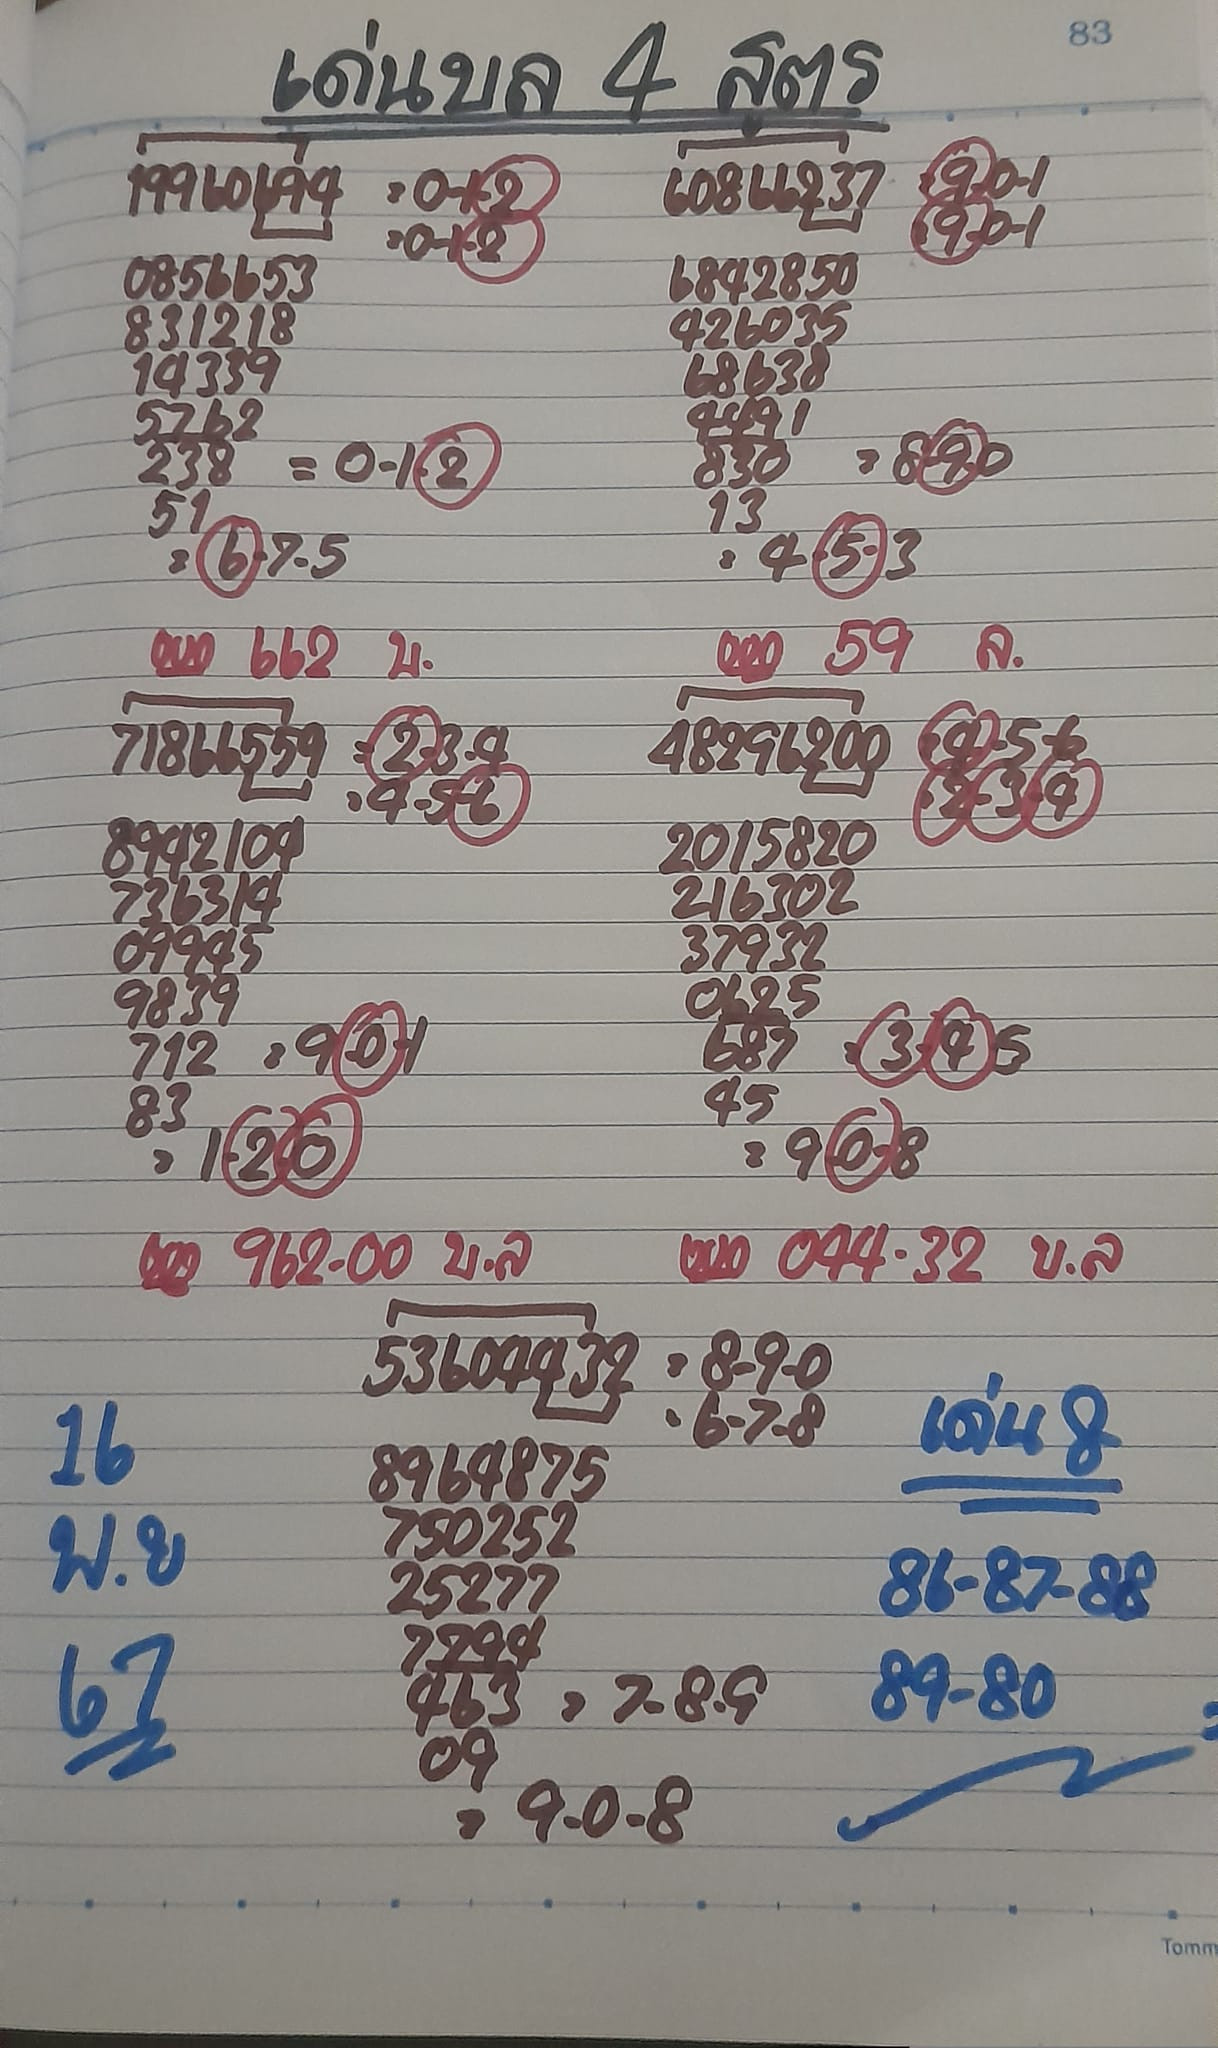 83
เด่นบล 4 สูตร
19960694 =0-1-2
=0-1-2
0856653
831218
14339
5762
238 = 0-1-2
51
= 6-7-5
ออก 662 บ.
60866237 =9-0-1
=9-0-1
6842850
426035
68638
4491
830 = 8-9-0
13
= 4-5-3
ออก 59 ล.
71866559 =2-3-4
=4-5-6
8942104
736314
09945
9839
712 = 9-0-1
83
= 1-2-0
ออก 962-00 บ.ล
48296200 =4-5-6
=2-3-4
2015820
216302
37932
0625
687 =3-4-5
45
= 9-0-8
ออก 044-32 บ.ล
53604432 = 8-9-0
= 6-7-8
8964875
750252
25277
7794
463 = 7-8-9
09
= 9-0-8
16
พ.ย
67
เด่น 8
86-87-88
89-80
Tomm